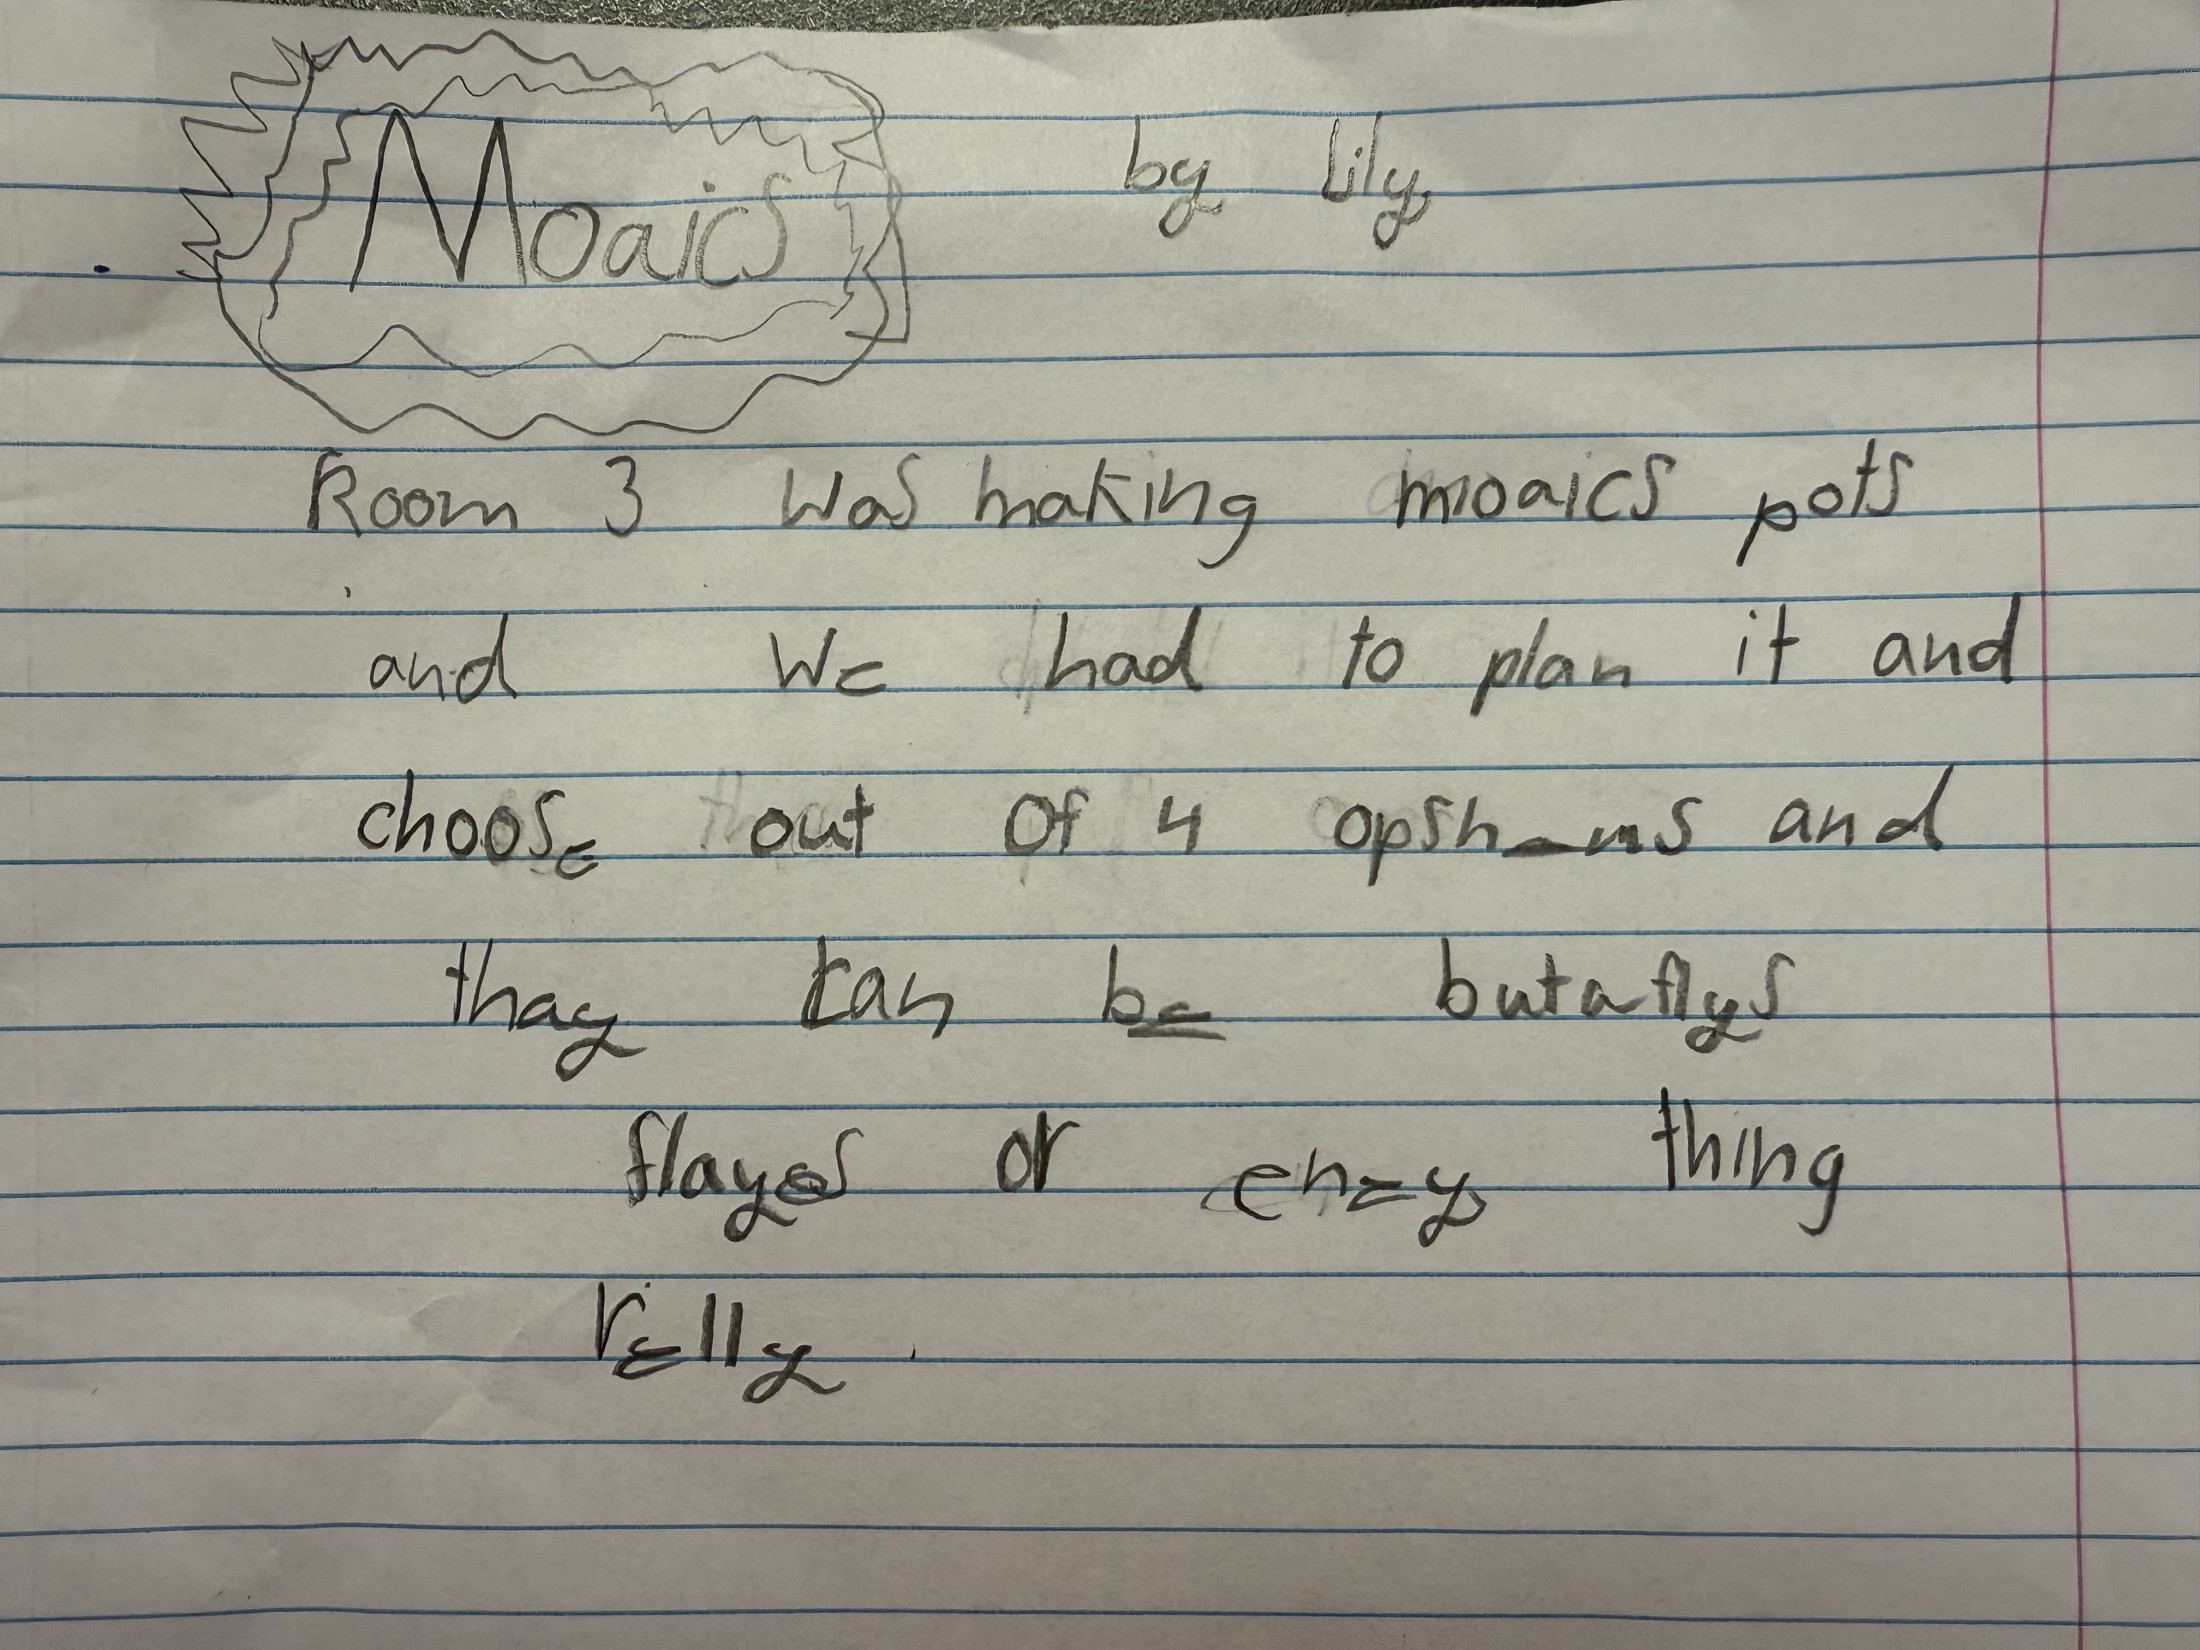 Moaics by lily
Room 3 was making moaics pots
and we had to plan it and
choose out of 4 opshens and
thay can be butaflys
flayes or eney thing
relly.